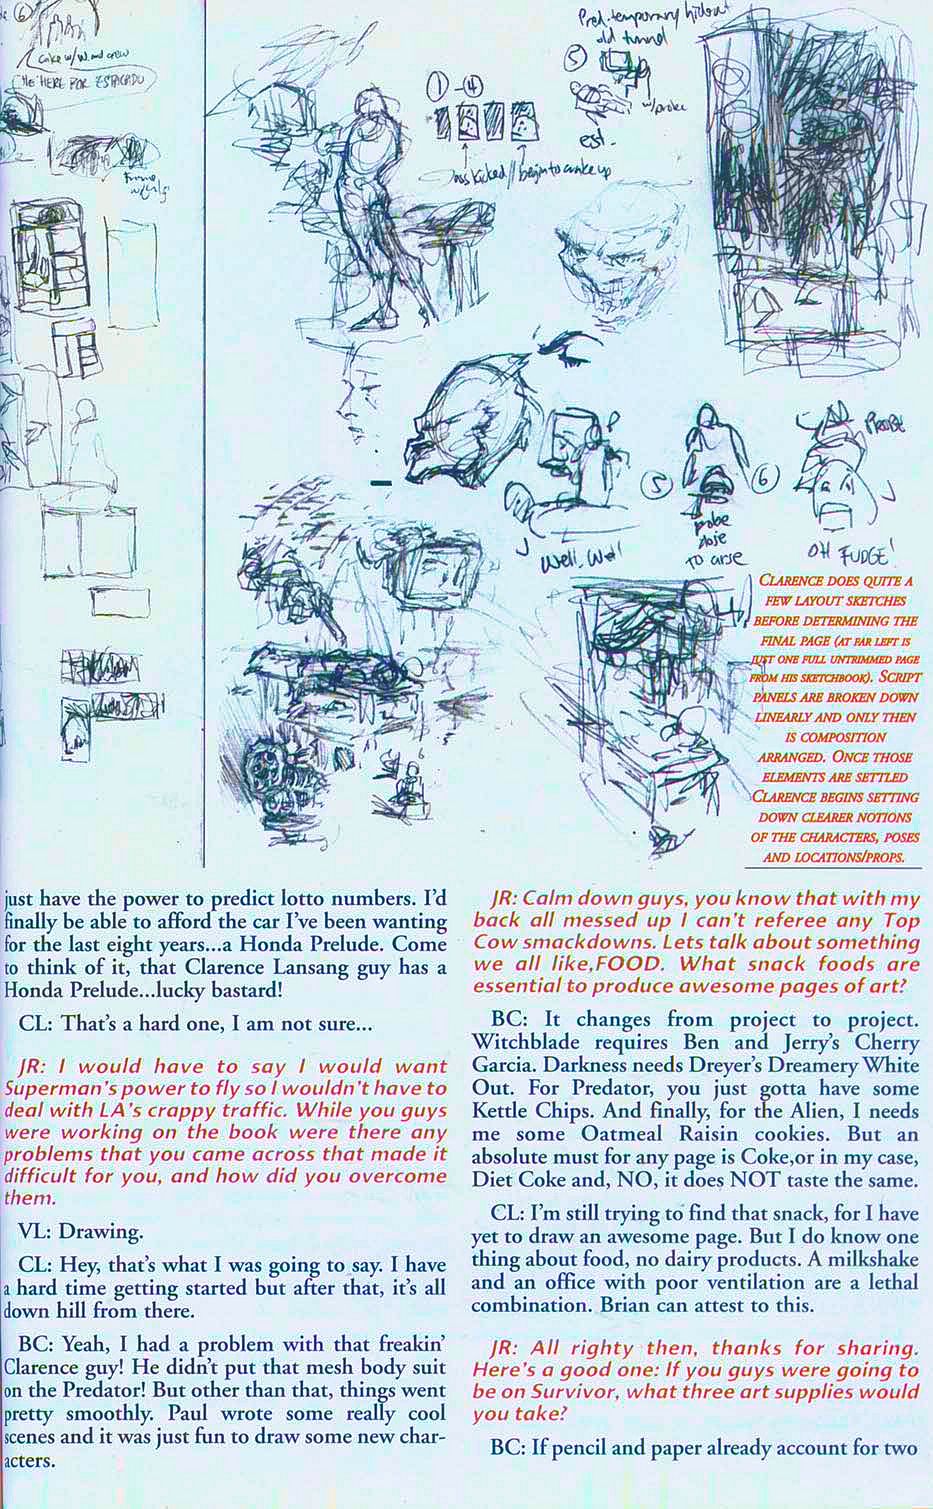 6
Coke w/ W. and crew
ME HERE FOR ESTACADO
Pred. temporary hideout
old tunnel
5
w/smoke
est.
1 - 4
Jass Kicked // begin to wake up
Well, Well
5
6
TO arse
OH FUDGE!
CLARENCE DOES QUITE A
FEW LAYOUT SKETCHES
BEFORE DETERMINING THE
FINAL PAGE (AT FAR LEFT IS
JUST ONE FULL UNTRIMMED PAGE
FROM HIS SKETCHBOOK). SCRIPT
PANELS ARE BROKEN DOWN
LINEARLY AND ONLY THEN
IS COMPOSITION
ARRANGED. ONCE THOSE
ELEMENTS ARE SETTLED
CLARENCE BEGINS SETTING
DOWN CLEARER NOTIONS
OF THE CHARACTERS, POSES
AND LOCATIONS/PROPS.
just have the power to predict lotto numbers. I'd
finally be able to afford the car I've been wanting
for the last eight years...a Honda Prelude. Come
to think of it, that Clarence Lansang guy has a
Honda Prelude...lucky bastard!
CL: That's a hard one, I am not sure...
JR: I would have to say I would want
Superman's power to fly so I wouldn't have to
deal with LA's crappy traffic. While you guys
were working on the book were there any
problems that you came across that made it
difficult for you, and how did you overcome
them.
VL: Drawing.
CL: Hey, that's what I was going to say. I have
a hard time getting started but after that, it's all
down hill from there.
BC: Yeah, I had a problem with that freakin'
Clarence guy! He didn't put that mesh body suit
on the Predator! But other than that, things went
pretty smoothly. Paul wrote some really cool
scenes and it was just fun to draw some new char-
acters.
JR: Calm down guys, you know that with my
back all messed up I can't referee any Top
Cow smackdowns. Lets talk about something
we all like,FOOD. What snack foods are
essential to produce awesome pages of art?
BC: It changes from project to project.
Witchblade requires Ben and Jerry's Cherry
Garcia. Darkness needs Dreyer's Dreamery White
Out. For Predator, you just gotta have some
Kettle Chips. And finally, for the Alien, I needs
me some Oatmeal Raisin cookies. But an
absolute must for any page is Coke,or in my case,
Diet Coke and, NO, it does NOT taste the same.
CL: I'm still trying to find that snack, for I have
yet to draw an awesome page. But I do know one
thing about food, no dairy products. A milkshake
and an office with poor ventilation are a lethal
combination. Brian can attest to this.
JR: All righty then, thanks for sharing.
Here's a good one: If you guys were going to
be on Survivor, what three art supplies would
you take?
BC: If pencil and paper already account for two